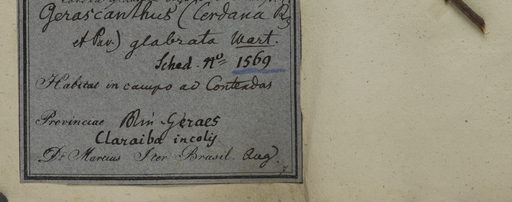 Gerascanthus (Cerdana Rz
et Pav.) glabrata Mart.
Sched. No= 1569
Habitat in campo ad Contendas
Provinciae Min Geraes
Claraiba incolis
Dr Martius Iter Brasil. Aug.